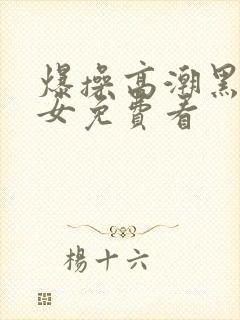 爆操高潮黑
女免費看
楊十六